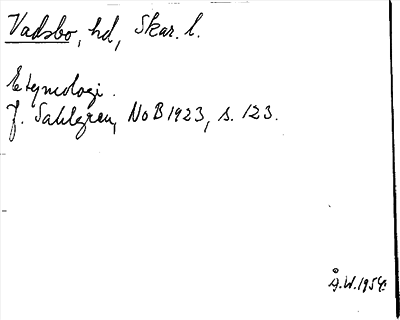 Vadsbo, hd, Skar. l.
Etymologi.
J. Sahlgren, NoB 1923, s. 123.
Å.W. 1954.